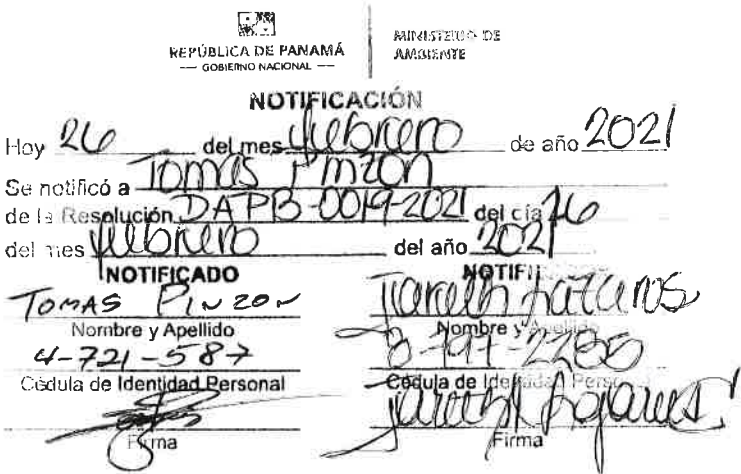 REPÚBLICA DE PANAMÁ
— GOBIERNO NACIONAL —
MINISTERIO DE
AMBIENTE
NOTIFICACIÓN
Hoy 26 del mes febrero de año 2021
Se notificó a Tomas Pinzon
de la Resolución DAPB-0019-2021 del día 26
del mes febrero del año 2021
NOTIFICADO
TOMAS PINZON
Nombre y Apellido
4-721-587
Cédula de Identidad Personal
Firma
Nombre y Apellido
Cédula de Identidad Personal
Firma